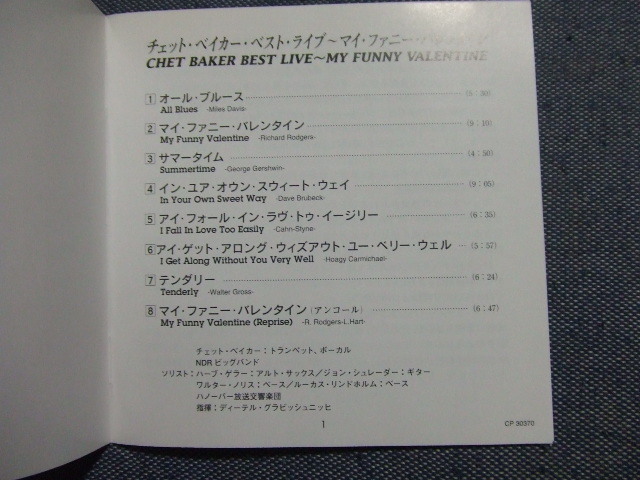 チェット・ベイカー・ベスト・ライブ～マイ・ファニー・
CHET BAKER BEST LIVE～MY FUNNY VALENTINE
1 オール・ブルース
All Blues -Miles Davis-
2 マイ・ファニー・バレンタイン (9:10)
My Funny Valentine -Richard Rodgers-
3 サマータイム (4:30)
Summertime -George Gershwin-
4 イン・ユア・オウン・スウィート・ウェイ (9:05)
In Your Own Sweet Way -Dave Brubeck-
5 アイ・フォール・イン・ラヴ・トゥ・イージリー (6:35)
I Fall In Love Too Easily -Cahn-Styne-
6 アイ・ゲット・アロング・ウィズアウト・ユー・ベリー・ウェル (5:37)
I Get Along Without You Very Well -Hoagy Carmichael-
7 テンダリー (6:24)
Tenderly -Walter Gross-
8 マイ・ファニー・バレンタイン(アンコール) (6:47)
My Funny Valentine (Reprise) -R. Rodgers-L.Hart-
チェット・ベイカー；トランペット、ボーカル
NDR ビッグバンド
ソリスト：ハーブ・ゲラー；アルト・サックス／ジョン・シュレーダー；ギター
ワルター・ノリス；ベース／ルーカス・リンドホルム；ベース
ハノーバー放送交響楽団
指揮：ディーテル・グラビッシュニッヒ
1
CP 30370